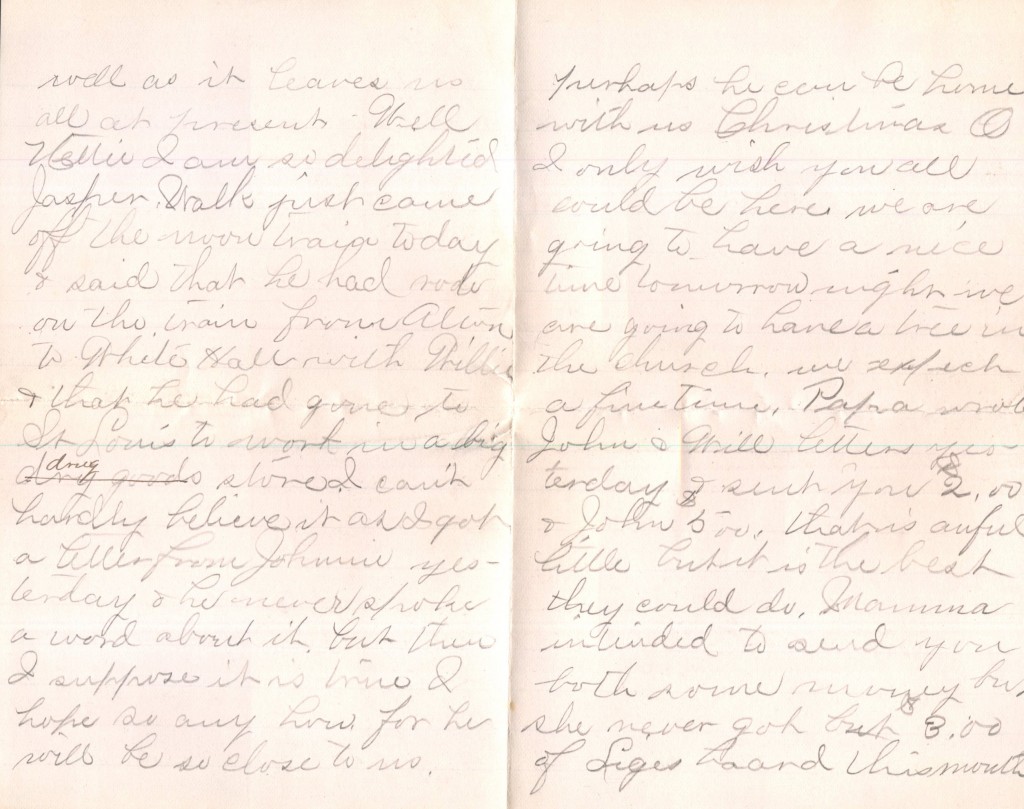 well as it leaves us
all at present. Well
Nettie I am so delighted
Jasper Walk just came
off the noon train today
& said that he had rode
on the train from Alton
to White Hall with Willie
& that he had gone to
St Louis to work in a big
drug
dry goods store I can't
hardly believe it as I got
a letter from Johnnie yes-
terday & he never spoke
a word about it, but then
I suppose it is true I
hope so any how for he
will be so close to us.
perhaps he can be home
with us Christmas O
I only wish you all
could be here we are
going to have a nice
time tomorrow night we
are going to have a tree in
the church. we expect
a fine time. Papa wrote
John & Will letters yes-
terday & sent you $2.00
& John $5.00. that is awful
little but it is the best
they could do. Mamma
intended to send you
both some money but
she never got but $3.00
of board this month